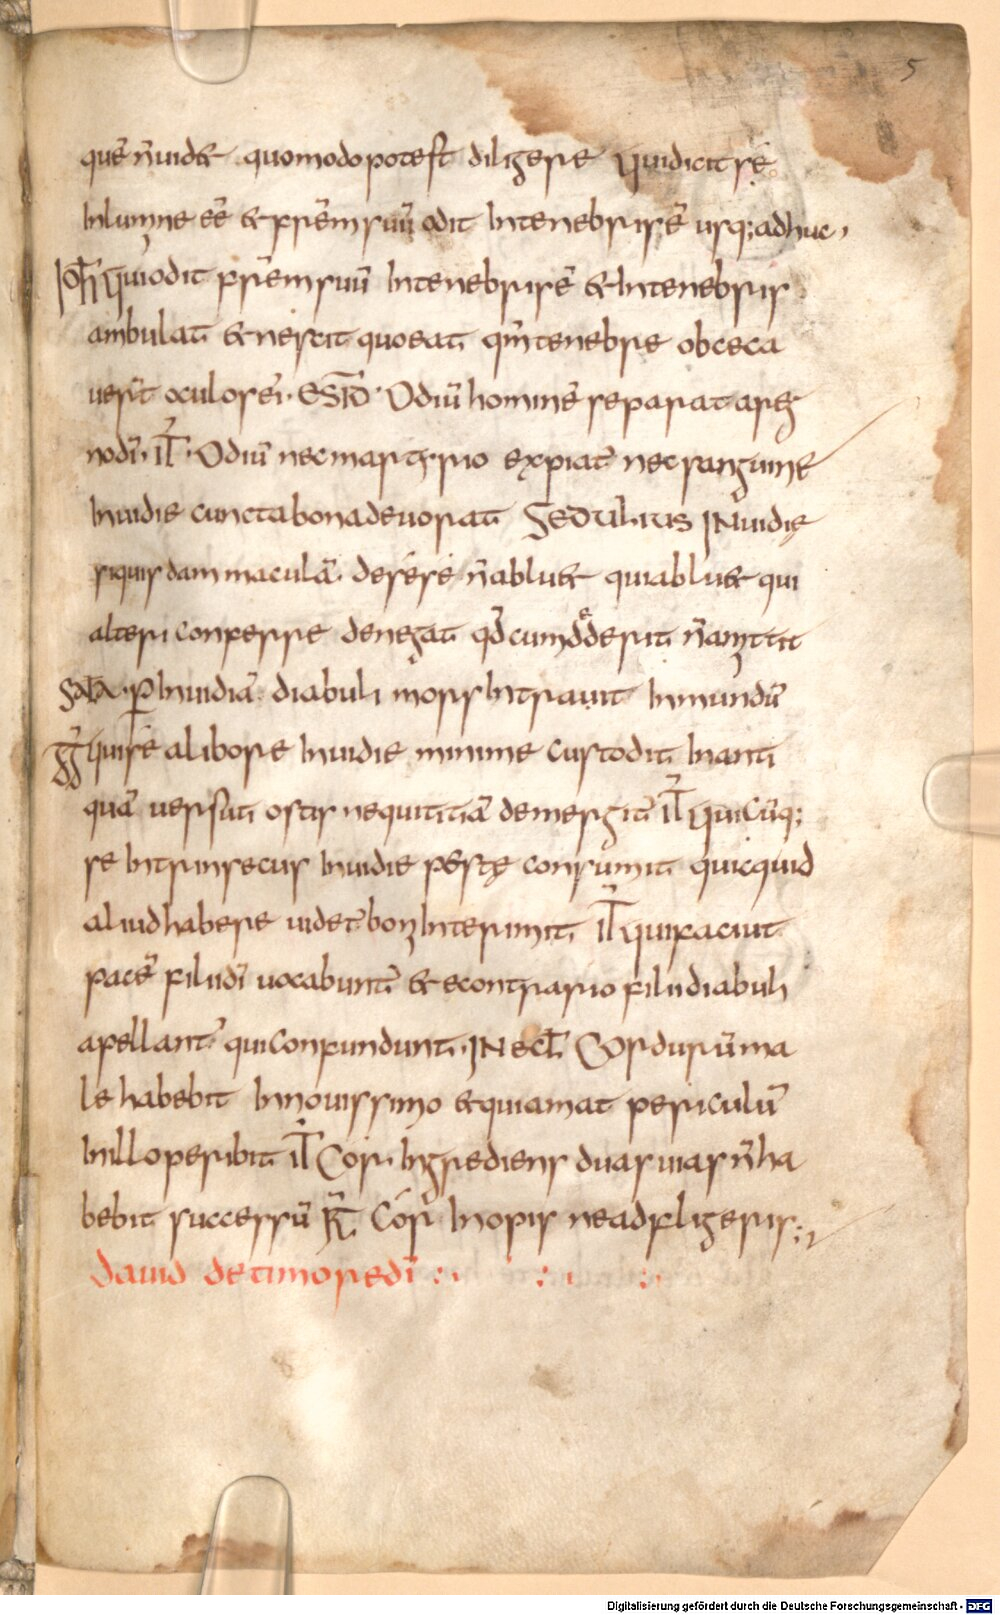 5
quē n̄ uidet quomodo potest diligere Qui dicit se
in lumine eē & frēm suū odit in tenebris ē usq; adhuc,
Ioh̄ Qui odit frēm suū in tenebris ē & in tenebris
ambulat & nescit quo eat qm̄ tenebre obceca
uer̄t oculos ei. ESID Odiū hominē separat a reg
no dī. IT̄ Odiū nec martyrio expiat̄ nec sanguine
inuidie cuncta bona deuorat SEDULIUS INuidie
si quis dam maculā de se se n̄ abluet qui abluet qui
alteri confesse denegat qd̄ cum dederit n̄ amittit
SAL̄ Per inuidiā diabuli mors intrauit in mundū
GḠ qui se a libore inuidie minime custodit in anti
quā uersuti ostis nequititiā demergit̄ IT̄ Qui cūq;
se intrinsecus inuidie peste consumit quicquid
aliud habere uidet̄ bon interimit IT̄ Qui faciut
pacē filii dī uocabunt̄ & e contrario filii diabuli
apellant̄ qui confundunt. IN ECL̄ Cor durū ma
le habebit in nouissimo & qui amat periculū
in illo peribit IT̄ Cor ingrediens duas uias n̄ ha
bebit successū R̄ Cor inopis ne adfligeris:,
dauid de timore dī :. : . :.
Digitalisierung gefördert durch die Deutsche Forschungsgemeinschaft - DFG